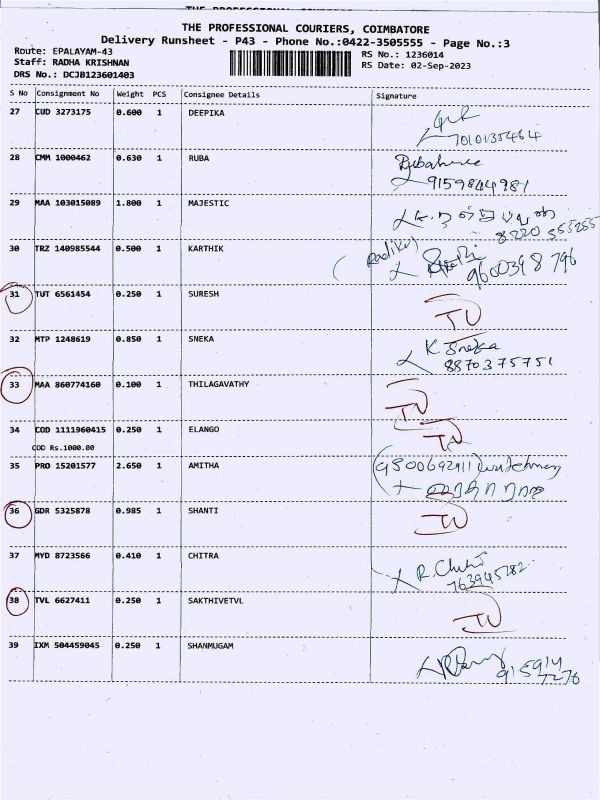 THE PROFESSIONAL COURIERS, COIMBATORE
Delivery Runsheet - P43 - Phone No.:0422-3505555 - Page No.:3
Route: EPALAYAM-43
RS No.: 1236014
Staff: RADHA KRISHNAN
RS Date: 02-Sep-2023
DRS No.: DCJB123601403
S No Consignment No Weight PCS Consignee Details Signature
27 CUD 3273175 0.600 1 DEEPIKA
28 CMM 1000462 0.630 1 RUBA
9159844981
29 MAA 103015089 1.800 1 MAJESTIC
8220 555255
30 TRZ 140985544 0.500 1 KARTHIK
9600398 796
31 TUT 6561454 0.250 1 SURESH
32 MTP 1248619 0.850 1 SNEKA
K Sneka
8870375751
33 MAA 860774160 0.100 1 THILAGAVATHY
34 COD 1111960415 0.250 1 ELANGO
COD Rs.1000.00
35 PRO 15201577 2.650 1 AMITHA
9500692911 watchman
36 GDR 5325878 0.985 1 SHANTI
37 MYD 8723566 0.410 1 CHITRA
38 TVL 6627411 0.250 1 SAKTHIVETVL
39 IXM 504459045 0.250 1 SHANMUGAM